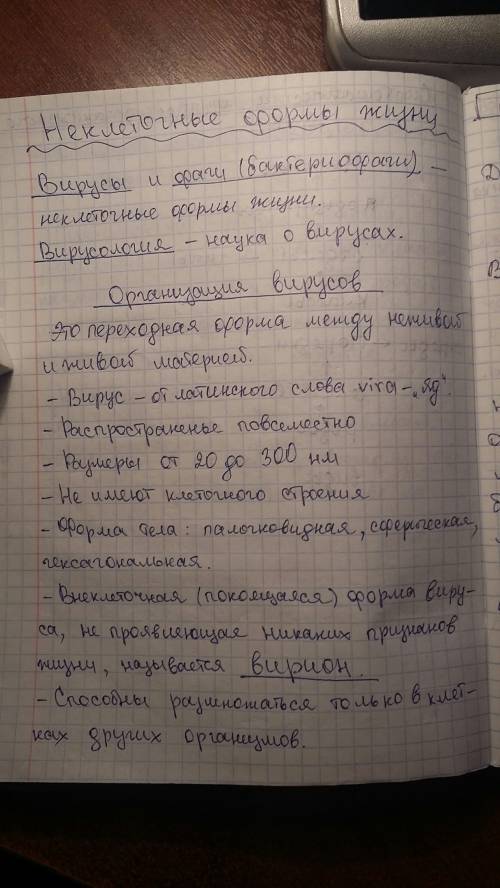 Неклеточные формы жизни
Вирусы и фаги (бактериофаги) –
неклеточные формы жизни.
Вирусология – наука о вирусах.
Организация вирусов
Это переходная форма между неживой
и живой материей.
- Вирус – от латинского слова vira – „яд".
- Распространенье повсеместно
- Размеры от 20 до 300 нм
- Не имеют клеточного строения
- Форма тела: палочковидная, сферическая,
гексагональная.
- Внеклеточная (покоящаяся) форма виру-
са, не проявляющая никаких признаков
жизни, называется вирион.
- Способны размножаться только в клет-
ках других организмов.